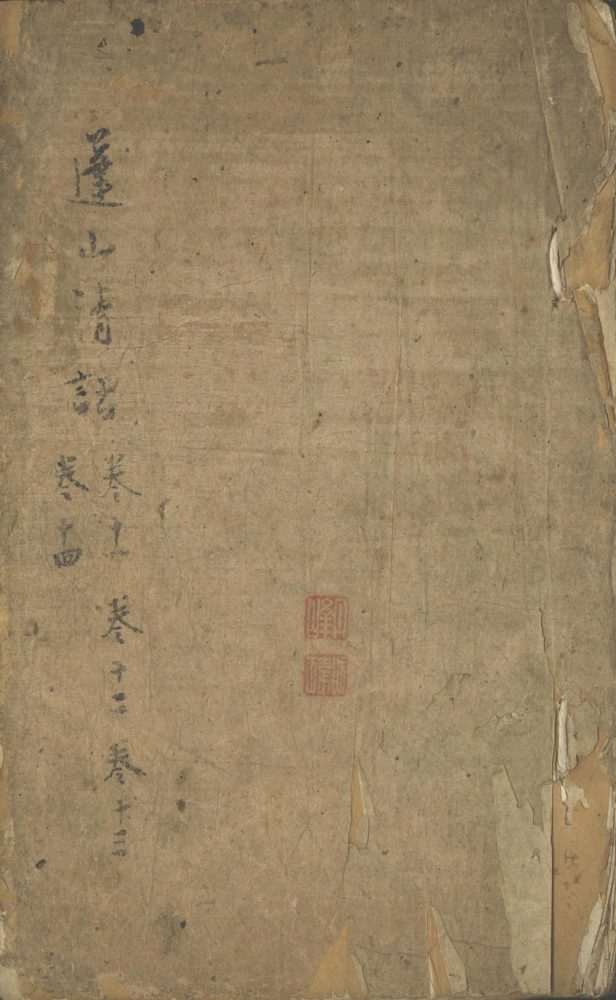 蓬山清話
卷十一 卷十二 卷十三
卷十四